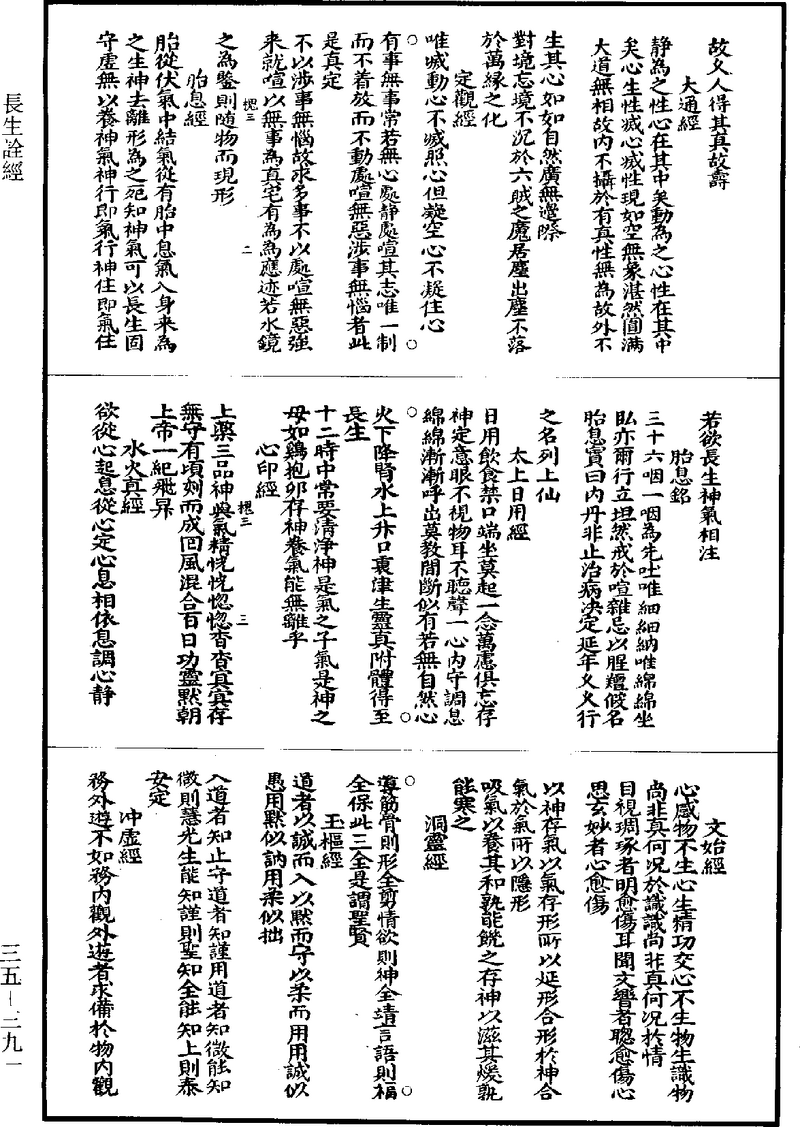 長生詮經
故久人得其真故壽
大通經
静為之性心在其中矣動為之心性在其中
矣心生性滅心滅性現如空無象湛然圓满
大道無相故内不攝於有真性無為故外不
生其心如如自然廣無邊際
對境忘境不沉於六賊之魔居塵出塵不落
於萬縁之化
定觀經
唯滅動心不滅照心但凝空心不凝住心
有事無事常若無心處静處喧其志唯一制
而不着放而不動處喧無惡涉事無惱者此
是真定
不以涉事無惱故求多事不以處喧無惡強
來就喧以無事為真宅有為為應迹若水鏡
之為鑒則随物而現形
胎息經
胎從伏氣中結氣從有胎中息氣入身来為
之生神去離形為之死知神氣可以長生固
守虚無以養神氣神行即氣行神住即氣住
若欲長生神氣相注
胎息銘
三十六咽一咽為先吐唯細細納唯綿綿坐
臥亦爾行立坦然戒於喧雜忌以腥羶假名
胎息實曰内丹非止治病决定延年久久行
之名列上仙
太上日用經
日用飲食禁口端坐莫起一念萬慮俱忘存
神定意眼不視物耳不聽聲一心内守調息
綿綿漸漸呼出莫教間斷似有若無自然心
火下降腎水上升口裏津生靈真附體得至
長生
十二時中常要清浄神是氣之子氣是神之
母如鷄抱卵存神養氣能無離乎
心印經
上藥三品神與氣精恍恍惚惚杳杳冥冥存
無守有頃刻而成回風混合百日功靈黙朝
上帝一紀飛昇
水火真經
欲從心起息從心定心息相依息調心静
文始經
心感物不生心生精功交心不生物生識物
尚非真何况於識識尚非真何况於情
目視琱琢者明愈傷耳聞交響者聰愈傷心
思玄妙者心愈傷
以神存氣以氣存形所以延形合形於神合
氣於氣所以隱形
吸氣以養其和孰能饑之存神以滋其煖孰
能寒之
洞靈經
導筋骨則形全剪情欲則神全靖言語則福
全保此三全是謂聖賢
玉樞經
道者以誠而入以黙而守以柔而用用誠似
愚用黙似訥用柔似拙
入道者知止守道者知謹用道者知微能知
微則慧光生能知謹則聖知全能知止則泰
安定
冲虚經
務外遊不如務内觀外遊者求備於物内觀
三五—三九一